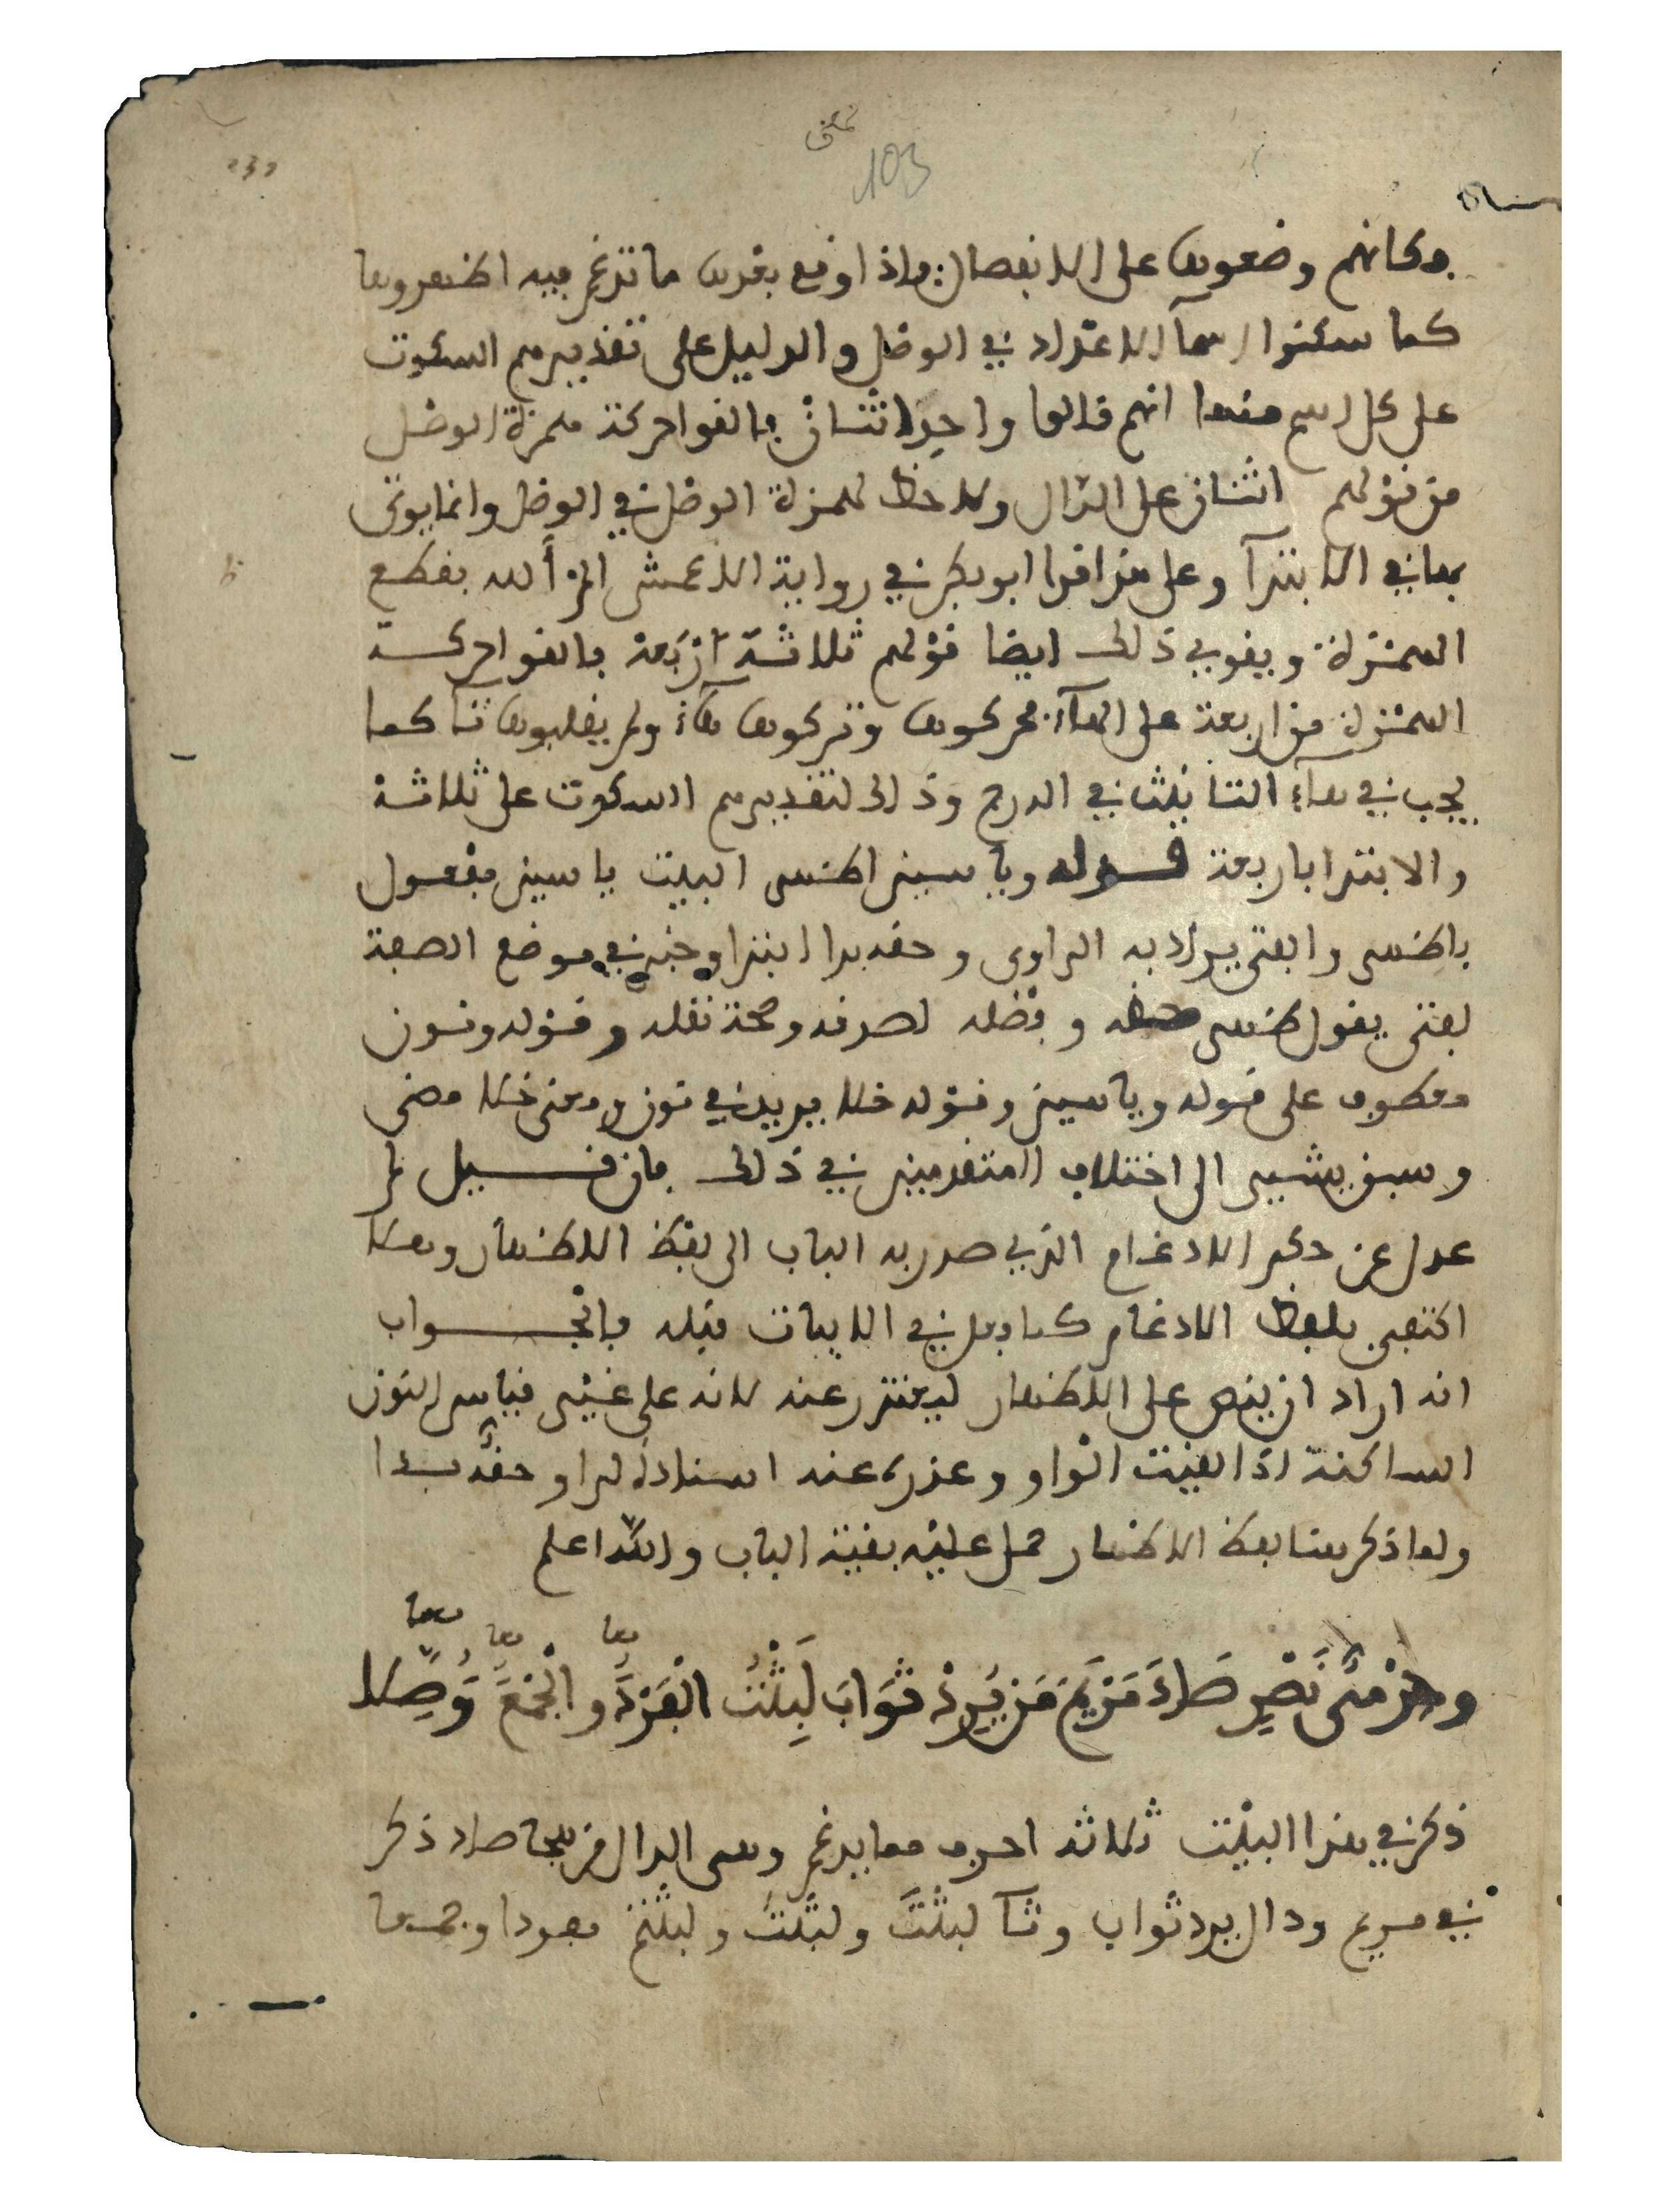 نمعنى
103
فكانهم وضعوها على الانفصال فاذا وقع بعدها ما تدغم فيه اظهروها
كما سكنوا اسمآ الاعداد في الوصل والدليل على تقديرهم السكوت
على كل اسم منها انهم قالوا واحد اثنان فالقوا حركة همزة الوصل
من قولهم اثنان على الدال ولا حظ لهمزة الوصل في الوصل وانما يوتى
بها في الابتدآ وعلى هذا قرا ابو بكر في رواية الاعمش الم ألله بقطع
الهمزة ويقوي ذلك ايضا قولهم ثلاثة أربعة فالقوا حركة
الهمزة من اربعة على الهآء فحركوها وتركوها هآء ولم يقلبوها تآ كما
يجب في هآء التانيث في الدرج وذلك لتقديرهم السكوت على ثلاثة
والابتدا باربعة قوله وياسين اظهر البيت ياسين مفعول
باظهر والفتى يراد به الراوي وحقه بدا ابتدا وخبر في موضع الصفة
لفتى يقول ظهر حقه وفضله لصدقه وصحة نقله وقوله ونون
معطوف على قوله وياسين وقوله خلا يريد في نون ومعنى خلا مضى
وسبق يشير الى اختلاف المتقدمين في ذلك فان قيل لم
عدل عن ذكر الادغام الذي صدر به الباب الى لفظ الاظهار وهلا
اكتفى بلفظ الادغام كما فعل في الابيات قبله فالجواب
انه اراد ان ينص على الاظهار ليعتذر عنه لانه على غير قياس النون
الساكنة اذا لقيت الواو وعذره عنه اسناده لراو حقه بدا
ولما ذكر هنا لفظ الاظهار حمل عليه بقية الباب والله اعلم
وحرمي نصر صاد مريم من يرد ثواب لبثت الفرد والجمع وصلا
معا معا معا
ذكر في هذا البيت ثلاثة احرف مما يدغم وهي الدال من هجا صاد ذكر
في مريم ودال يرد ثواب وثآ لبثت ولبثت ولبثتم مفردا وجمعا